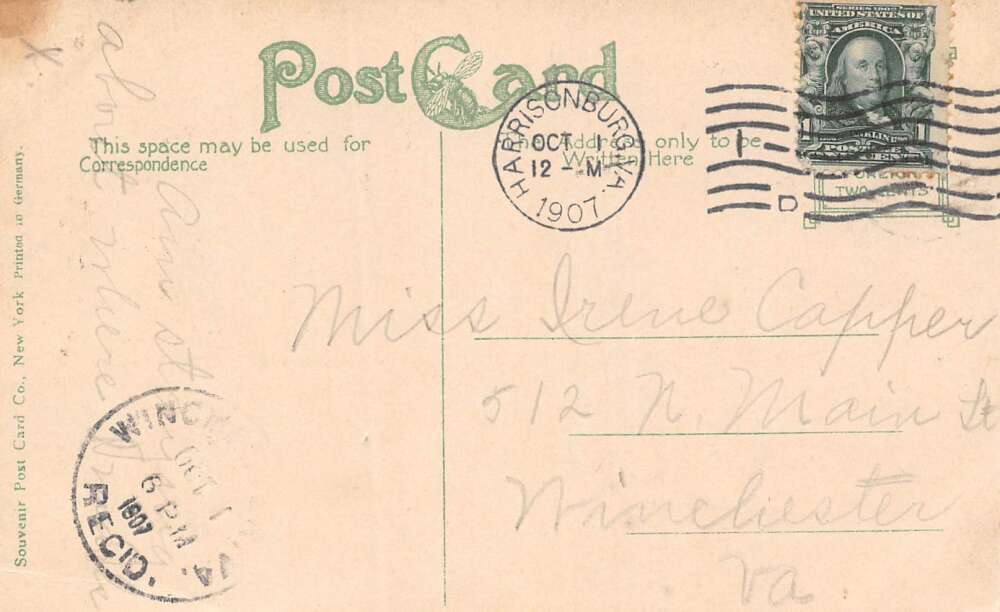 Post Card
This space may be used for
Correspondence
The Address only to be
Written Here
SERIES 1902
UNITED STATES OF
AMERICA
FRANKLIN
POSTAGE
ONE CENT
FOREIGN
TWO CENTS
HARRISONBURG, VA.
OCT 1
12 - M
1907
D
Miss Irene Capper
512 N. Main St
Winchester
Va
X.
about where
Am
WINCH
OCT 1
6 PM
1907
VA.
REC'D.
Souvenir Post Card Co., New York Printed in Germany.